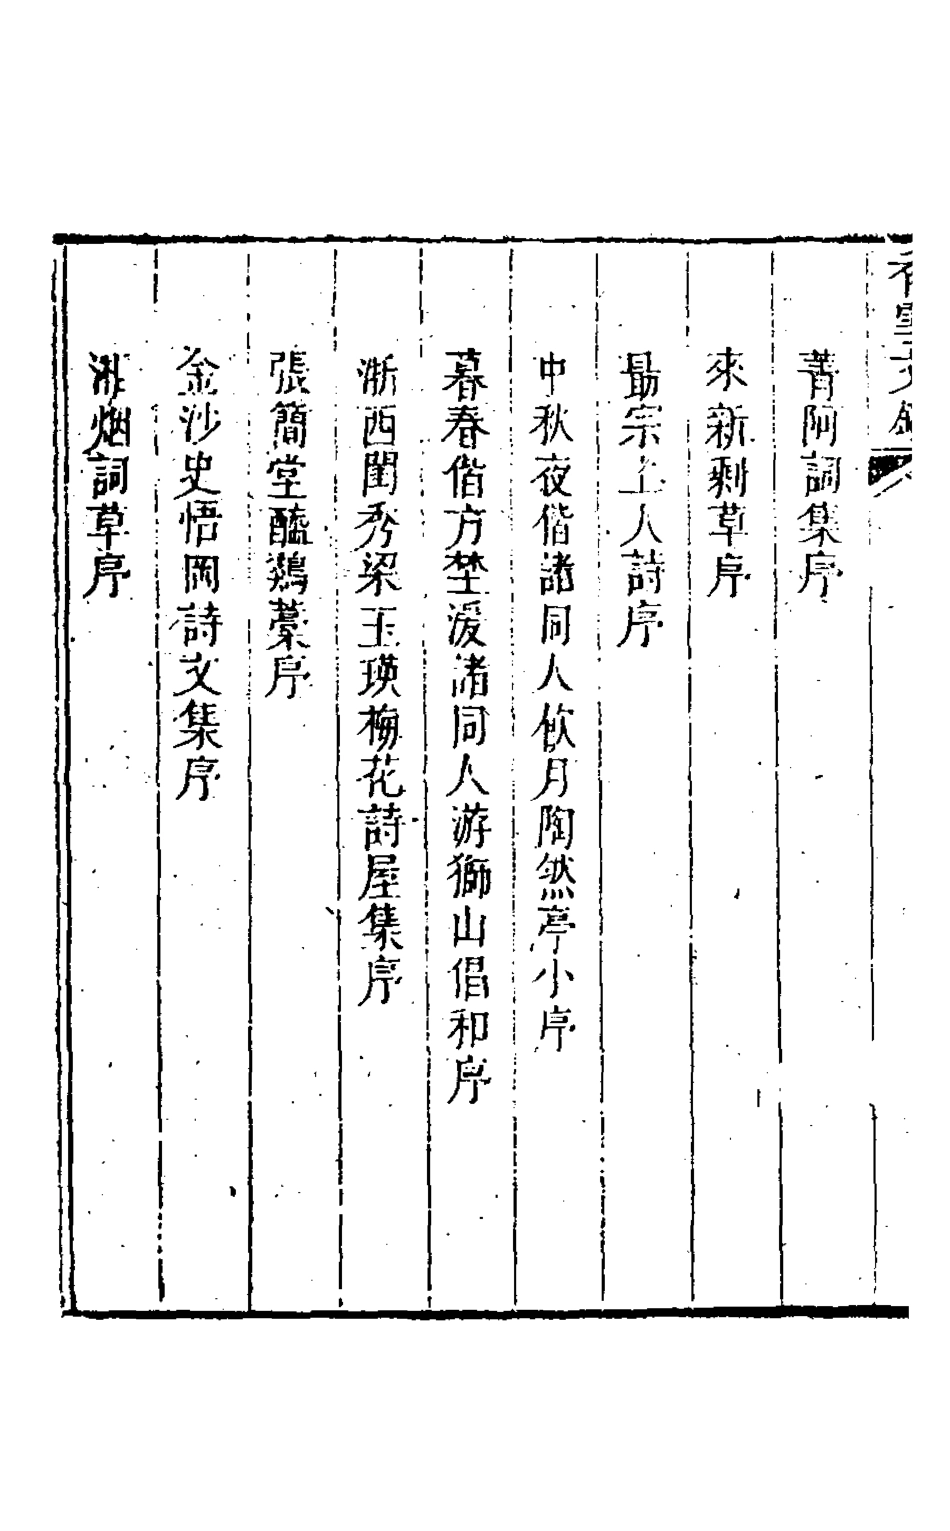 香雪文鈔
菁阿詞集序
來新剩草序
最宗上人詩序
中秋夜偕諸同人飲月陶然亭小序
暮春偕方埜湲諸同人游獅山倡和序
浙西閨秀梁玉瑛梅花詩屋集序
張簡堂醯鷄藁序
金沙史悟岡詩文集序
湘烟詞草序